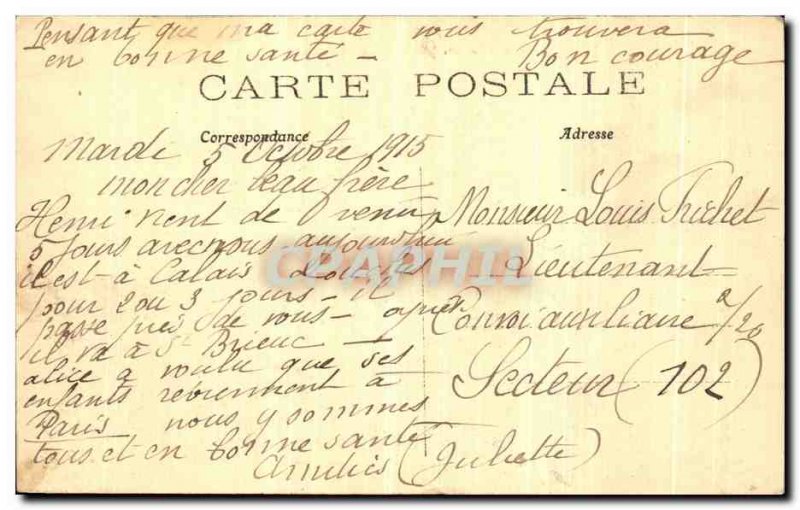 Pensant que ma carte vous trouvera
en bonne santé — Bon courage
CARTE POSTALE
Correspondance
Adresse
Mardi 5 Octobre 1915
mon cher beau frère
Henri vient de venir
5 jours avec nous aujourd'hui
il est à Calais
pour 2 ou 3 jours — il
passe près de vous — après
il va à St Brieuc —
alice a voulu que ses
enfants reviennent à
Paris nous y sommes
tous et en bonne santé
Amitiés (Juliette)
Monsieur Louis Frichet
Lieutenant
Convoi auxiliaire 2/20
Secteur (102)
CPAPHIL